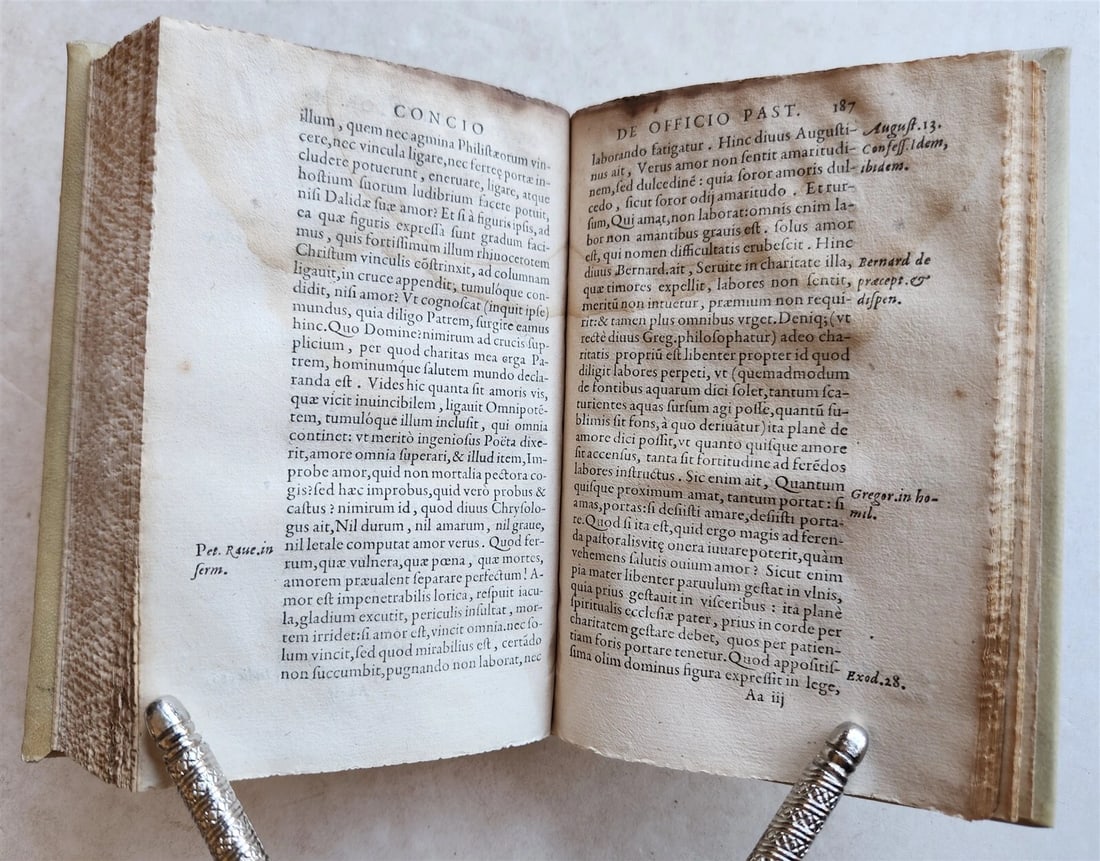 CONCIO
illum, quem nec agmina Philistæorum vin-
cere, nec vincula ligare, nec ferreę portæ in-
cludere potuerunt, eneruare, ligare, atque
hostium suorum ludibrium facere potuit,
nisi Dalidæ suæ amor? Et si à figuris ipsis, ad
ea quæ figuris expressa sunt gradum faci-
mus, quis fortissimum illum rhinocerotem
Christum vinculis cōstrinxit, ad columnam
ligauit, in cruce appendit, tumulóque con-
didit, nisi amor? Vt cognoscat (inquit ipse)
mundus, quia diligo Patrem, surgite eamus
hinc. Quo Domine? nimirum ad crucis sup-
plicium, per quod charitas mea erga Pa-
trem, hominumq́ue salutem mundo decla-
randa est. Vides hic quanta sit amoris vis,
quæ vicit inuincibilem, ligauit Omnipotē-
tem, tumulóque illum inclusit, qui omnia
continet: vt meritò ingeniosus Poëta dixe-
rit, amore omnia superari, & illud item, Im-
probe amor, quid non mortalia pectora co-
gis? sed hæc improbus, quid verò probus &
castus? nimirum id, quod diuus Chrysolo-
gus ait, Nil durum, nil amarum, nil graue,
nil letale computat amor verus. Quod fer-
rum, quæ vulnera, quæ pœna, quæ mortes,
amorem præualent separare perfectum! A-
mor est impenetrabilis lorica, respuit iacu-
la, gladium excutit, periculis insultat, mor-
tem irridet: si amor est, vincit omnia. nec so-
lum vincit, sed quod mirabilius est, certādo
non succumbit, pugnando non laborat, nec
Pet. Raue. in
serm.
DE OFFICIO PAST. 187
laborando fatigatur. Hinc diuus Augusti-
nus ait, Verus amor non sentit amaritudi-
nem, sed dulcedinē: quia soror amoris dul-
cedo, sicut soror odij amaritudo. Et rur-
sum, Qui amat, non laborat: omnis enim la-
bor non amantibus grauis est. solus amor
est, qui nomen difficultatis erubescit. Hinc
diuus Bernard. ait, Seruite in charitate illa,
quæ timores expellit, labores non sentit,
meritū non intuetur, præmium non requi-
rit: & tamen plus omnibus vrget. Deniq; (vt
rectè diuus Greg. philosophatur) adeo cha-
ritatis propriū est libenter propter id quod
diligit labores perpeti, vt (quemadmodum
de fontibus aquarum dici solet, tantum sca-
turientes aquas sursum agi posse, quantū su-
blimis sit fons, à quo deriuātur) ita planè de
amore dici possit, vt quanto quisque amore
sit accensus, tanta sit fortitudine ad ferēdos
labores instructus. Sic enim ait, Quantum
quisque proximum amat, tantum portat: si
amas, portas: si desiisti amare, desiisti porta-
te. Quod si ita est, quid ergo magis ad feren-
da pastoralis vitę onera iuuare poterit, quàm
vehemens salutis ouium amor? Sicut enim
pia mater libenter paruulum gestat in vlnis,
quia prius gestauit in visceribus: ita planè
spiritualis ecclesiæ pater, prius in corde per
charitatem gestare debet, quos per patien-
tiam foris portare tenetur. Quod appositis-
sima olim dominus figura expressit in lege,
Aa iij
August. 13.
Confess. Idem,
ibidem.
Bernard de
præcept. &
dispen.
Gregor. in ho-
mil.
Exod. 28.